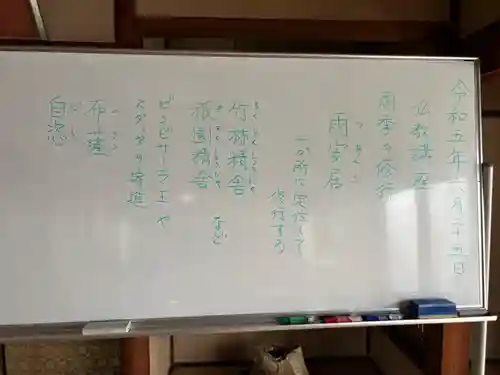 令和五年六月二十五日
仏教講座
雨季の修行
雨安居
うあんご
一か所に定住して
修行する
竹林精舎
ちくりんしょうじゃ
祇園精舎 など
ぎおんしょうじゃ
ビンビサーラ王や
スダッタの寄進
布薩
ふさつ
自恣
じし